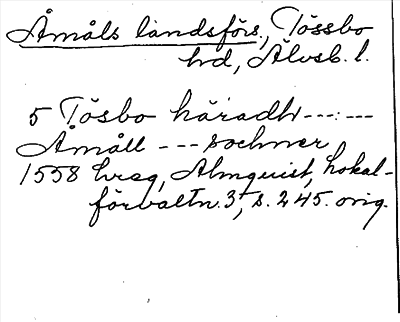 Åmåls landsförs., Tössbo
hd, Älvsb. l.
5 Tösbo häradh ---:---
Åmåll --- sochner
1558 hrsg, Almquist, Lokal-
förvaltn. 3, s. 245. orig.